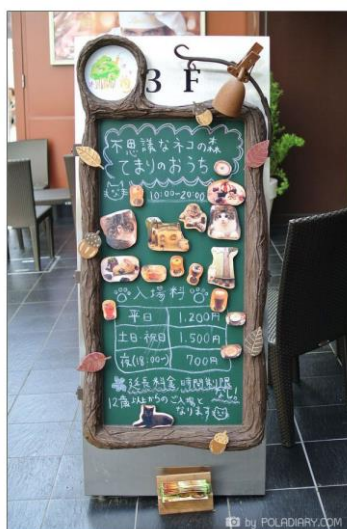 3 F
不思議なネコの森
てまりのおうち
10:00~20:00
入場料
平日 1.200円
土日・祝日 1.500円
夜(18:00~) 700円
延長料金 時間制限
なし!
12歳以上からのご入場と
なります
by POLADIARY.COM